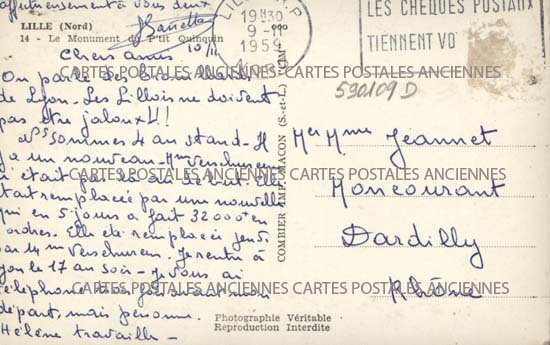 affectueusement à vous deux
LILLE (Nord)
14 - Le Monument du P'tit Quinquin
10/11
Chers amis
On parle de
de Lyon - Les Lillois ne doivent
pas être jaloux !!
sommes 4 au stand - Il
y a un nouveau - Mme Verschueren
n'était pas là au début. Elle
était remplacée par une nouvelle
qui en 5 jours a fait 32000 en
ordres. Elle a été remplacée jeudi
par Mme Verschueren. Je rentre à
Lyon le 17 au soir - Je vous ai
téléphoné avant mon
départ, mais personne.
Hélène travaille -
COMBIER IMP. MACON (S.-et-L.) "CIM"
Photographie Véritable
Reproduction Interdite
19H30
9-11
1959
NORD
LES CHEQUES POSTAUX
TIENNENT VO
590109 D
Mr Mme Jeannet
Moncourant
Dardilly
Rhône
CARTES POSTALES ANCIENNES CARTES POSTALES ANCIENNES
CARTES POSTALES ANCIENNES CARTES POSTALES ANCIENNES
CARTES POSTALES ANCIENNES CARTES POSTALES ANCIENNES